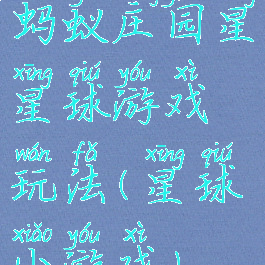 蚂蚁庄园星
xīng qiú yóu xì
星球游戏
wán fǎ xīng qiú
玩法(星球
xiǎo yóu xì
小游戏)